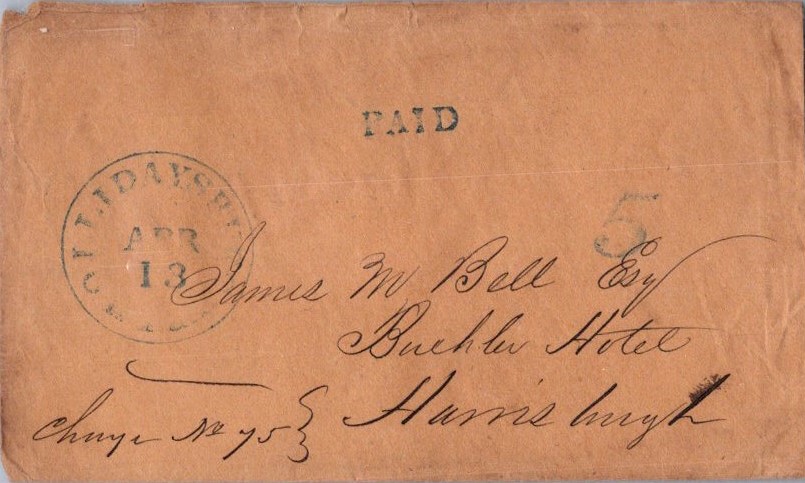 PAID
HOLLIDAYSBURG
APR
13
5
James M Bell Esq
Buehler Hotel
Harrisburgh
Charge No 75